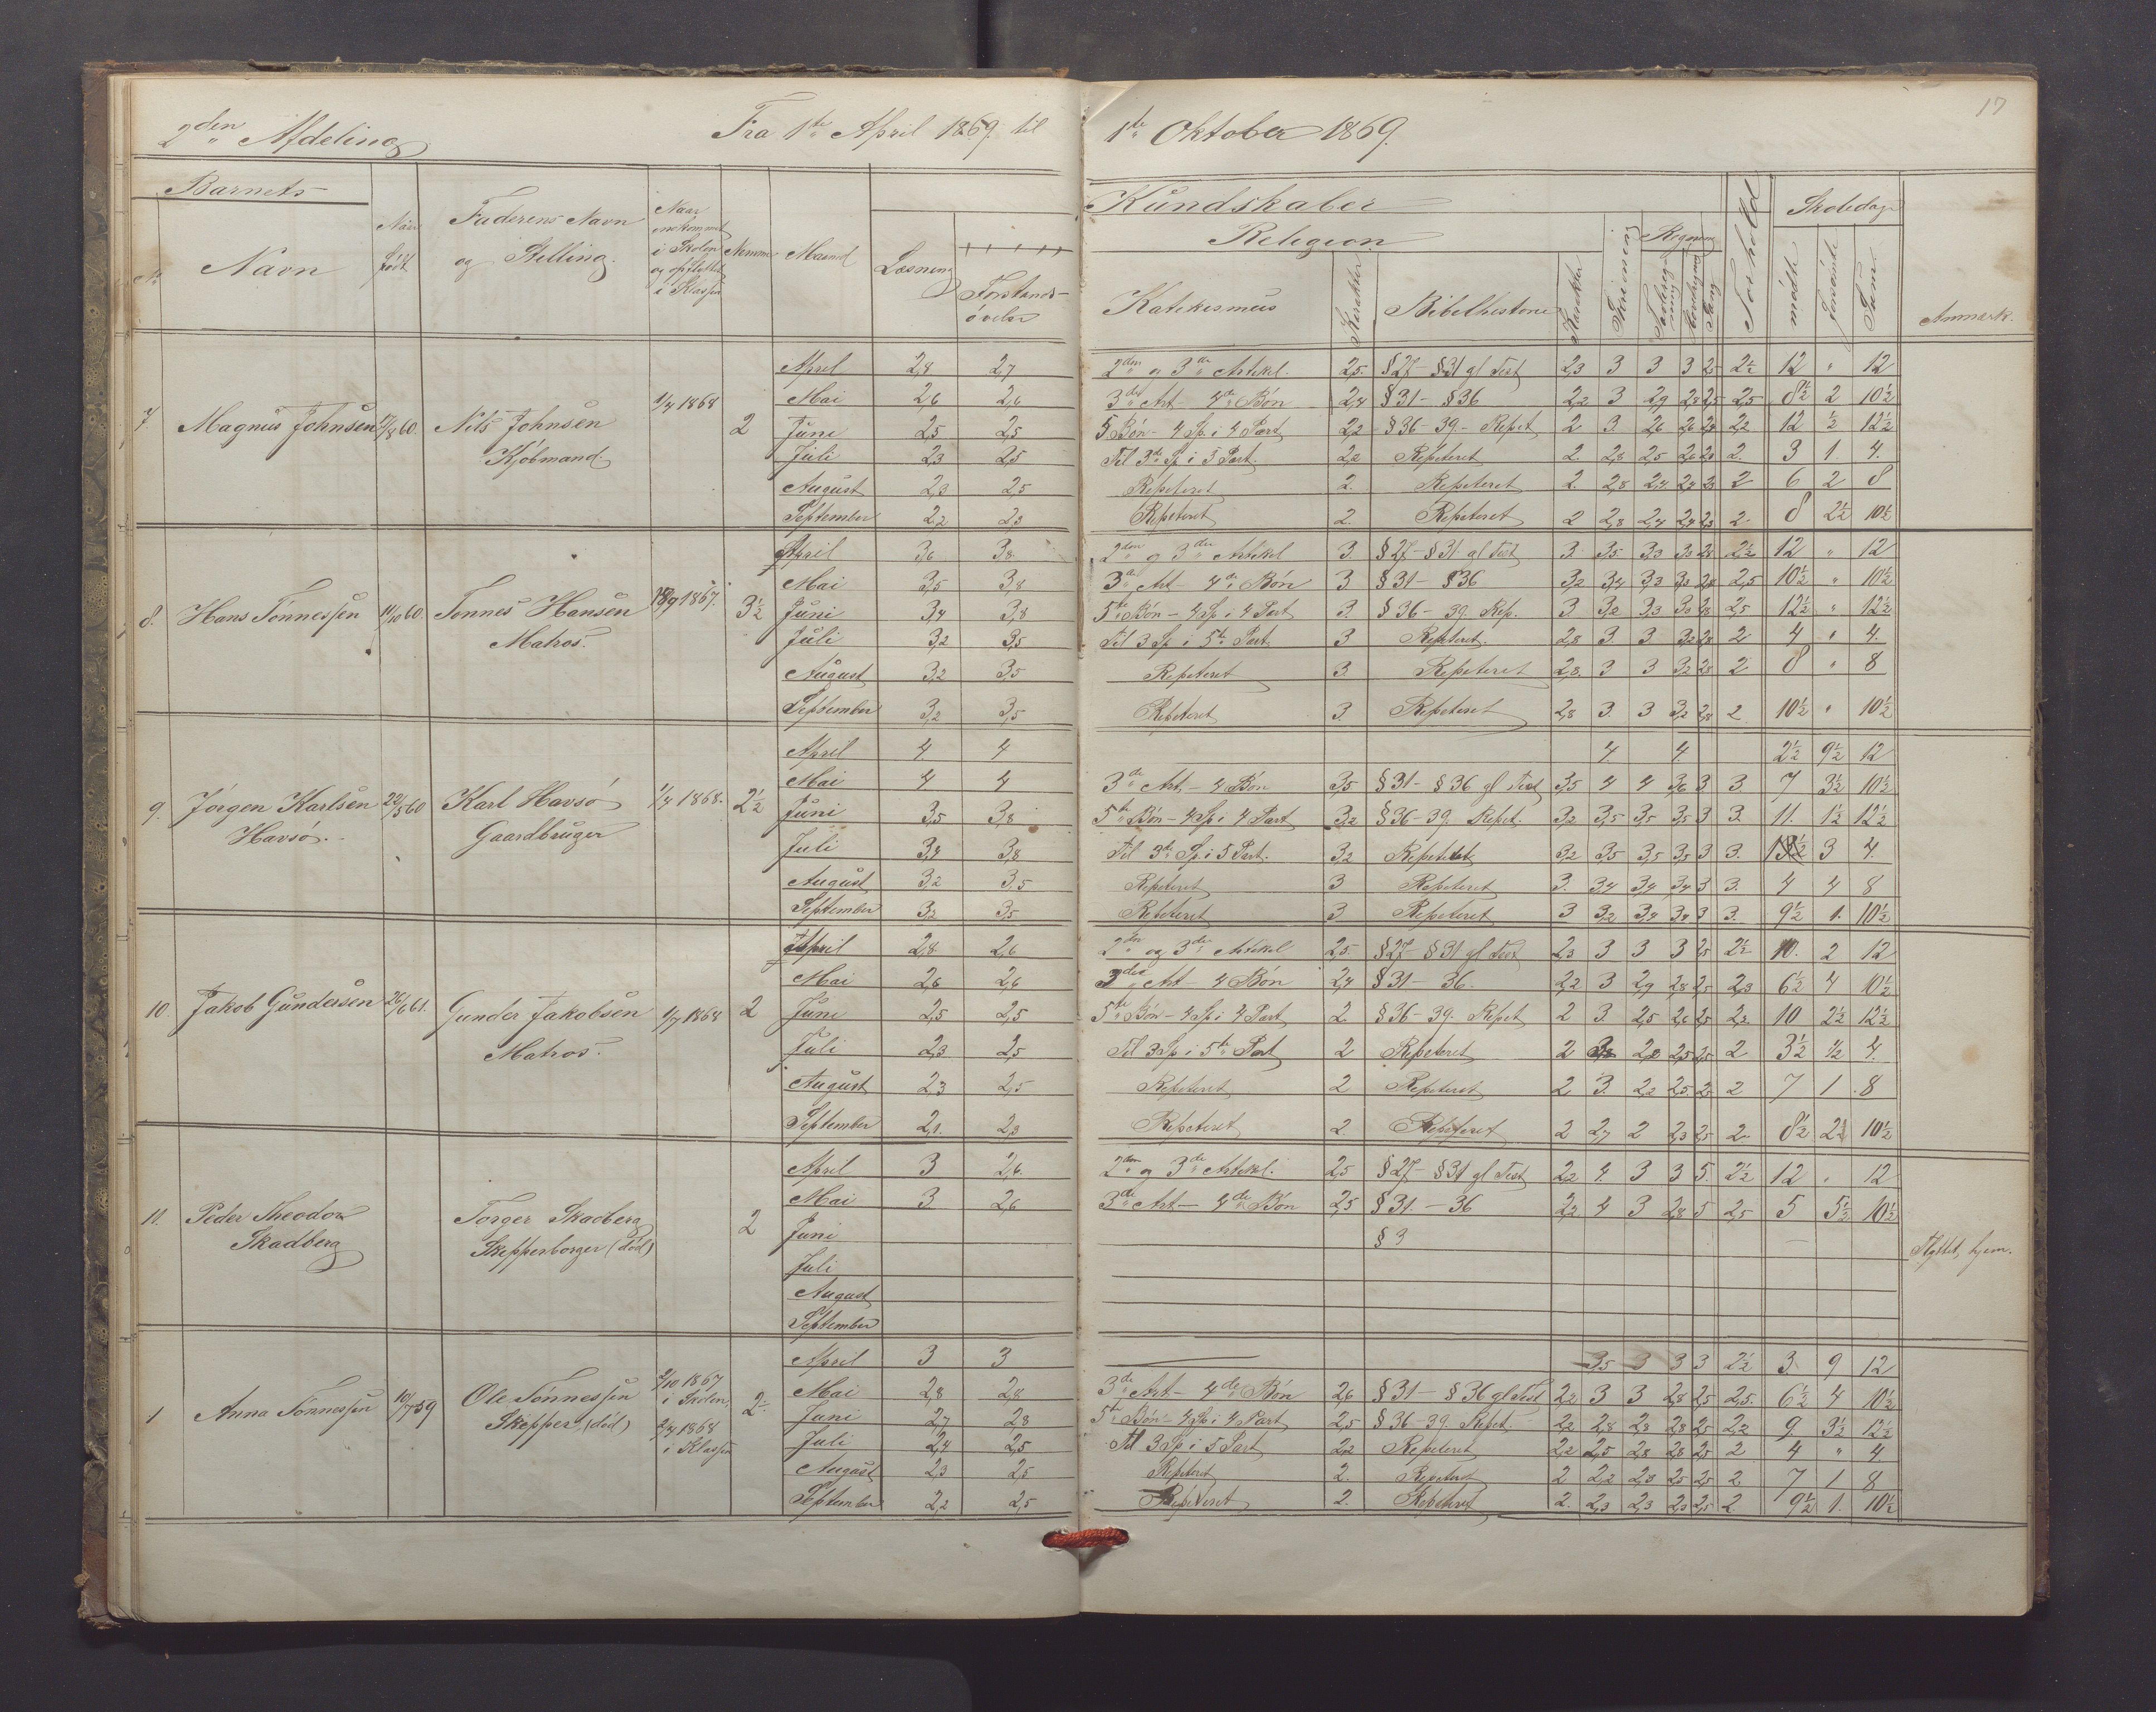 17
2den Afdeling Fra 1ste April 1869 til 1ste Oktober 1869.
Barnets
No Navn Naar født Faderens Navn og Stilling. Naar indkommet i Skolen og opflyttet i Klassen Nemme Maaned Læsning Forstands-øvelse
Kundskaber Forhold Skoledage
Religion Skrivning Regning
Katekismus Karakter Bibelhistorie Karakter Tavleregning Hovedregning Sang mødte forsømte Sum Anmærk.
7. Magnus Johnsen 17/8 60. Nils Johnsen Kjøbmand. 1/4 1868 2
April 2,8 2,7 2den og 3die Artikel. 2,5. § 27 - § 31 gl Test 2,3 3 3 3 2,5 2½ 12 " 12
Mai 2,6 2,6 3die Art - 4de Bøn 2,4 § 31 - § 36 2,2 3 2,9 2,8 2,5 2,5 8½ 2 10½
Juni 2,5 2,5 5 Bøn - 4 Sp. i 4 Part 2,2 § 36 - 39 - Repet 2 3. 2,6 2,6 2,4 2,2 12 ½ 12½
Juli 2,3 2,5 Til 3die Sp i 5 Part. 2,2 Repeteret 2. 2,8 2,5 2,6 2,3 2. 3 1. 4.
August 2,3 2,5 Repeteret 2. Repeteret 2. 2,8 2,4 2,4 2,3 2 6 2 8
September 2,2 2,3 Repeteret 2. Repeteret 2 2,8 2,4 2,4 2,3 2 8 2½ 10½
8. Hans Tønnessen 11/10 60. Tønnes Hansen Matros. 18/9 1867. 3½
April 3,6 3,8 2den og 3die Artikel 3. § 27 - § 31 gl Test 3. 3,5 3,3 3,3 2,8 2½ 12 " 12
Mai 3,5 3,8 3die Art - 4de Bøn 3. § 31 - § 36 3,2 3,4 3,3 3,3 2,8 2,5 10½ " 10½
Juni 3,4 3,8 5te Bøn - 4 Sp i 4 Part 3. § 36 - 39. Rep. 3 3,2 3,3 3,3 2,8 2,5 12½ " 12½
Juli 3,2 3,5 Til 3 Sp i 5te Part 3 Repeteret. 2,8 3 3 3,2 2,8 2 4 " 4.
August 3,2 3,5 Repeteret 3. Repeteret 2,8. 3 3 3,2 2,8 2 8 " 8
September 3,2 3,5 Repeteret 3. Repeteret 2,8 3. 3 3,2 2,8 2 10½ " 10½
9. Jørgen Karlsen Havsø. 22/5 60 Karl Havsø Gaardbruger 1/4 1868. 2½
April 4 4 4. 4. 2½ 9½ 12
Mai 4 4 3die Art, - 4 Bøn 3,5 § 31 - § 36 gl Test 3,5 4 4 3,6 3 3. 7 3½ 10½
Juni 3,5 3,8 5te Bøn - 4 Sp i 4 Part 3,2 § 36 - 39. Repet. 3,2 3,5 3,5 3,5 3 3 11. 1½ 12½
Juli 3,4 3,8 Til 3die Sp. i 5 Part. 3,2 Repeteret 3,2 3,5 3,5 3,5 3 3. 3 4.
August 3,2 3,5 Repeteret 3 Repeteret 3. 3,4 3,4 3,4 3 3. 4 4 8
September 3,2 3,5 Repeteret 3. Repeteret 3 3,2 3,4 3,4 3 3. 9½ 1. 10½
10. Jakob Gundersen 26/6 61. Gunder Jakobsen Matros. 1/7 1868 2
April 2,8. 2,6 2den og 3die Artikel 2,5. § 27 - § 31 gl Test 2,3 3 3 3 2,5 2½ 10. 2 12
Mai 2,6 2,6 3die Art - 4 Bøn 2,4 § 31 - 36. 2,2 3 2,9 2,8 2,5 2,3 6½ 4 10½
Juni 2,5 2,5 5te Bøn - 4 Sp i 4 Part 2. § 36 - 39. Repet 2 3. 2,5 2,6 2,5 2,2 10 2½ 12½
Juli 2,3 2,5 Til 3 Sp i 5te Part 2 Repeteret 2 2,2 2,5 2,5 2 3½ ½ 4.
August 2,3 2,5 Repeteret 2 Repeteret 2 3. 2,2 2,5 2 7 1 8
September 2,1. 2,3 Repeteret 2. Repeteret 2 2,7 2 2,3 2,5 2 8½ 2 10½
11. Peder Theodor Skadberg Torger Skadberg Skepperborger (død) 2
April 3 2,6 2den og 3die Artikel. 2,5 § 27 - § 31 gl Test 2,2 4. 3 3 5. 2½ 12 " 12
Mai 3 2,6 3die Art - 4de Bøn 2,5 § 31. - 36 2,2 4 3 2,8 5 2,5 5 5½ 10½
Juni § 3 Flyttet hjem.
Juli
August
September
1 Anna Tønnessen 10/7 59 Ole Tønnessen Skepper (død) 2/10 1867 i Skolen, 2/4 1868 i Klassen 2
April 3 3 3,5 3 3 3 2½ 3. 9 12
Mai 2,8 2,8 3die Art - 4de Bøn 2,6 § 31 - § 36 gl Test 2,2 3 3 2,8 2,5 2,5. 6½ 4 10½
Juni 2,7 2,8 5te Bøn - 4 Sp i 4 Part 2,5 § 36 - 39. Repet. 2,2 2,8 2,8 2,8 2,5 2,2 9. 3½ 12½
Juli 2,4 2,5 Til 3 Sp i 5 Part 2,2 Repeteret 2,2 2,5 2,8 2,8 2,5 2 4 " 4.
August 2,3 2,5 Repeteret 2. Repeteret 2 2,2 2,3 2,5 2,5 2. 7 1 8
September 2,2 2,5 Repeteret 2. Repeteret 2. 2,3 2,3 2,3 2,5 2. 9½ 1. 10½